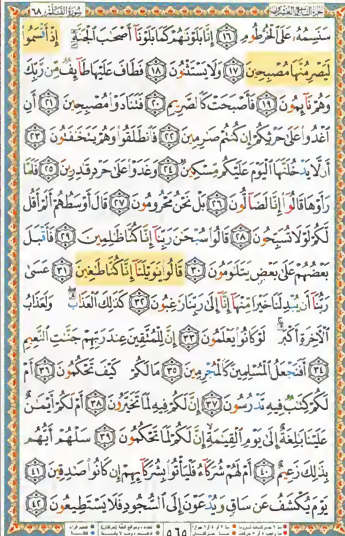 سُورَةُ القَلَم ٦٨
سَنَسِمُهُۥ عَلَى ٱلْخُرْطُومِ ١٦ إِنَّا بَلَوْنَٰهُمْ كَمَا بَلَوْنَآ أَصْحَٰبَ ٱلْجَنَّةِ إِذْ أَقْسَمُوا۟
لَيَصْرِمُنَّهَا مُصْبِحِينَ ١٧ وَلَا يَسْتَثْنُونَ ١٨ فَطَافَ عَلَيْهَا طَآئِفٌ مِّن رَّبِّكَ
وَهُمْ نَآئِمُونَ ١٩ فَأَصْبَحَتْ كَٱلصَّرِيمِ ٢٠ فَتَنَادَوْا۟ مُصْبِحِينَ ٢١ أَنِ
ٱغْدُوا۟ عَلَىٰ حَرْثِكُمْ إِن كُنتُمْ صَٰرِمِينَ ٢٢ فَٱنطَلَقُوا۟ وَهُمْ يَتَخَٰفَتُونَ ٢٣
أَن لَّا يَدْخُلَنَّهَا ٱلْيَوْمَ عَلَيْكُم مِّسْكِينٌ ٢٤ وَغَدَوْا۟ عَلَىٰ حَرْدٍ قَٰدِرِينَ ٢٥ فَلَمَّا
رَأَوْهَا قَالُوٓا۟ إِنَّا لَضَآلُّونَ ٢٦ بَلْ نَحْنُ مَحْرُومُونَ ٢٧ قَالَ أَوْسَطُهُمْ أَلَمْ أَقُل
لَّكُمْ لَوْلَا تُسَبِّحُونَ ٢٨ قَالُوا۟ سُبْحَٰنَ رَبِّنَآ إِنَّا كُنَّا ظَٰلِمِينَ ٢٩ فَأَقْبَلَ
بَعْضُهُمْ عَلَىٰ بَعْضٍ يَتَلَٰوَمُونَ ٣٠ قَالُوا۟ يَٰوَيْلَنَآ إِنَّا كُنَّا طَٰغِينَ ٣١ عَسَىٰ
رَبُّنَآ أَن يُبْدِلَنَا خَيْرًا مِّنْهَآ إِنَّآ إِلَىٰ رَبِّنَا رَٰغِبُونَ ٣٢ كَذَٰلِكَ ٱلْعَذَابُ وَلَعَذَابُ
ٱلْءَاخِرَةِ أَكْبَرُ لَوْ كَانُوا۟ يَعْلَمُونَ ٣٣ إِنَّ لِلْمُتَّقِينَ عِندَ رَبِّهِمْ جَنَّٰتِ ٱلنَّعِيمِ
٣٤ أَفَنَجْعَلُ ٱلْمُسْلِمِينَ كَٱلْمُجْرِمِينَ ٣٥ مَا لَكُمْ كَيْفَ تَحْكُمُونَ ٣٦ أَمْ
لَكُمْ كِتَٰبٌ فِيهِ تَدْرُسُونَ ٣٧ إِنَّ لَكُمْ فِيهِ لَمَا تَخَيَّرُونَ ٣٨ أَمْ لَكُمْ أَيْمَٰنٌ
عَلَيْنَا بَٰلِغَةٌ إِلَىٰ يَوْمِ ٱلْقِيَٰمَةِ إِنَّ لَكُمْ لَمَا تَحْكُمُونَ ٣٩ سَلْهُمْ أَيُّهُم
بِذَٰلِكَ زَعِيمٌ ٤٠ أَمْ لَهُمْ شُرَكَآءُ فَلْيَأْتُوا۟ بِشُرَكَآئِهِمْ إِن كَانُوا۟ صَٰدِقِينَ ٤١
يَوْمَ يُكْشَفُ عَن سَاقٍ وَيُدْعَوْنَ إِلَى ٱلسُّجُودِ فَلَا يَسْتَطِيعُونَ ٤٢
٥٦٥